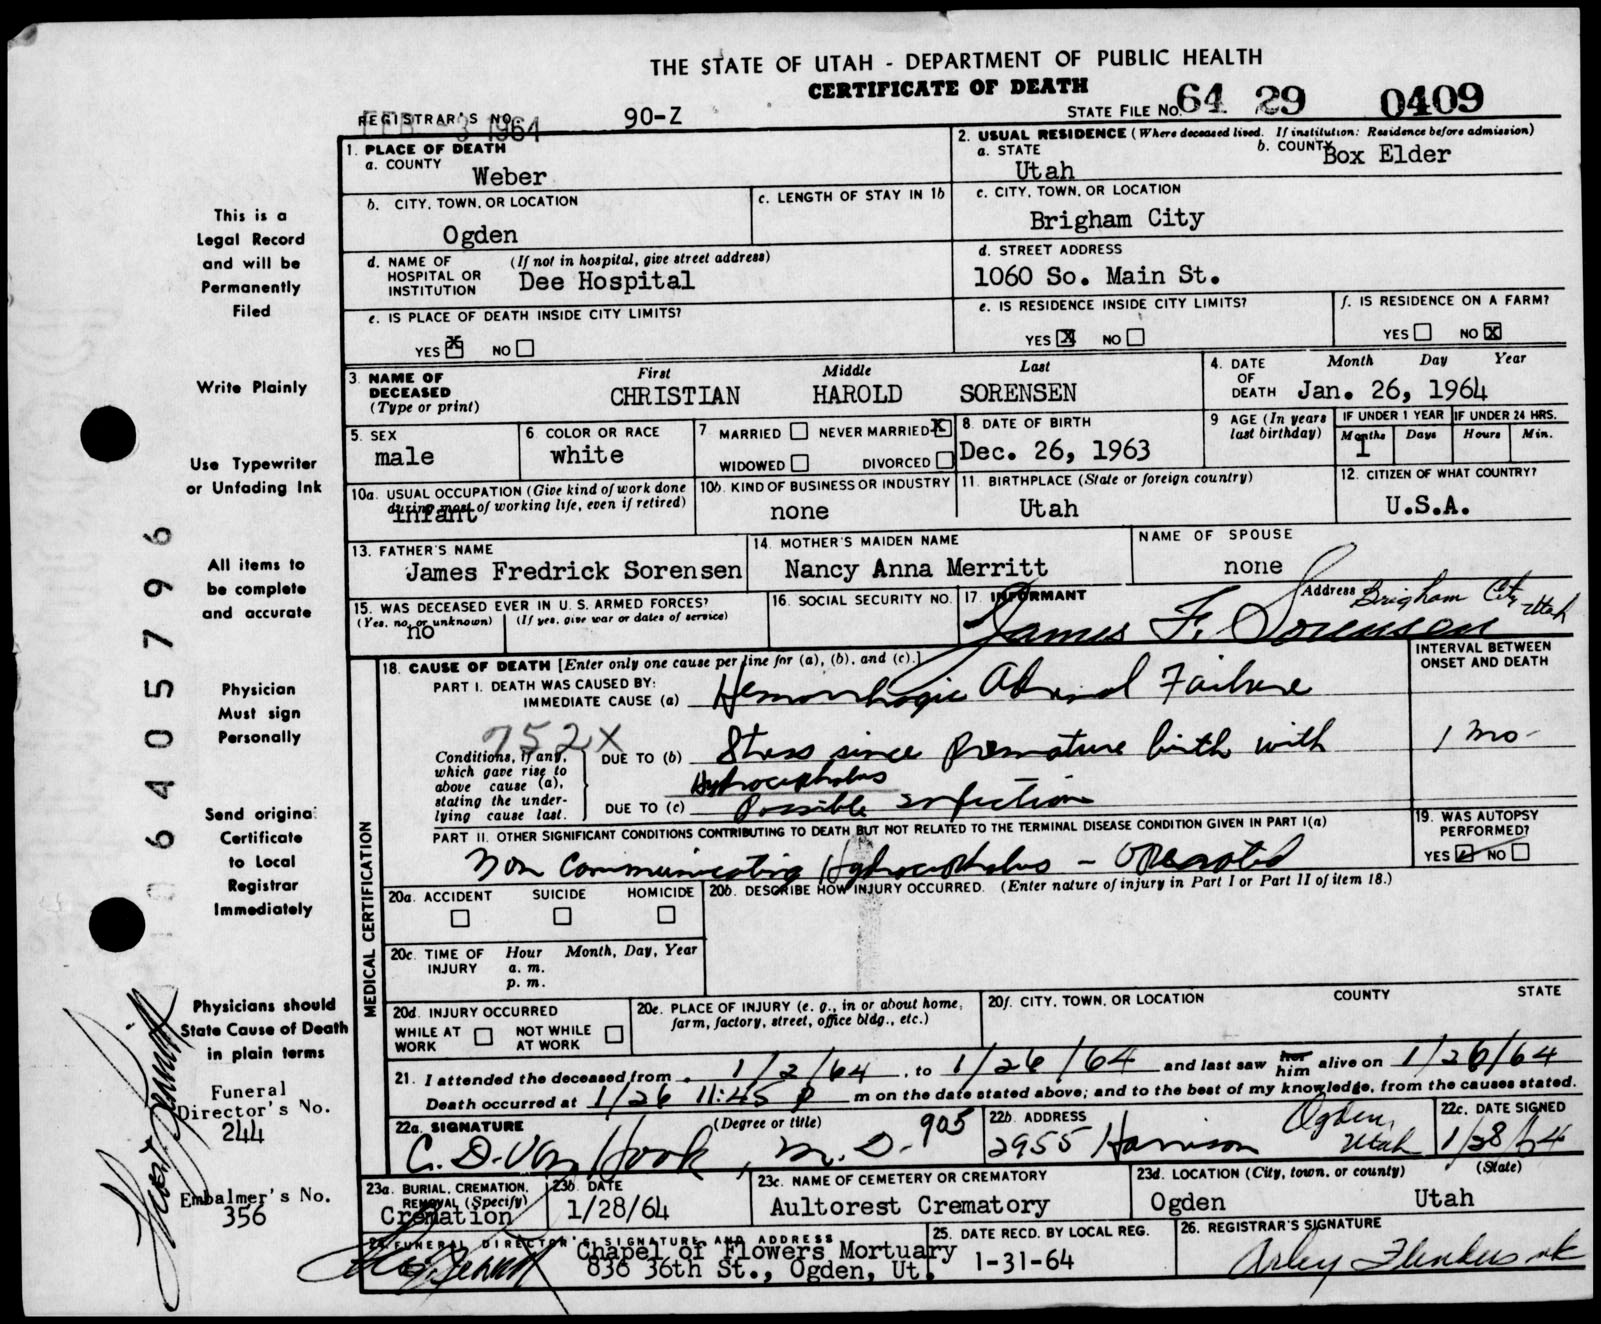 THE STATE OF UTAH - DEPARTMENT OF PUBLIC HEALTH
CERTIFICATE OF DEATH
REGISTRAR'S NO. 90-Z
FEB -3 1964
STATE FILE NO. 64 29 0409
1. PLACE OF DEATH
a. COUNTY
Weber
2. USUAL RESIDENCE (Where deceased lived. If institution: Residence before admission)
a. STATE
Utah
b. COUNTY
Box Elder
b. CITY, TOWN, OR LOCATION
Ogden
c. LENGTH OF STAY IN 1b
c. CITY, TOWN, OR LOCATION
Brigham City
d. NAME OF HOSPITAL OR INSTITUTION (If not in hospital, give street address)
Dee Hospital
d. STREET ADDRESS
1060 So. Main St.
e. IS PLACE OF DEATH INSIDE CITY LIMITS?
YES X NO
e. IS RESIDENCE INSIDE CITY LIMITS?
YES X NO
f. IS RESIDENCE ON A FARM?
YES NO X
3. NAME OF DECEASED (Type or print)
First Middle Last
CHRISTIAN HAROLD SORENSEN
4. DATE OF DEATH
Month Day Year
Jan. 26, 1964
5. SEX
male
6. COLOR OR RACE
white
7. MARRIED NEVER MARRIED X
WIDOWED DIVORCED
8. DATE OF BIRTH
Dec. 26, 1963
9. AGE (In years last birthday)
IF UNDER 1 YEAR IF UNDER 24 HRS.
Months Days Hours Min.
1
10a. USUAL OCCUPATION (Give kind of work done during most of working life, even if retired)
infant
10b. KIND OF BUSINESS OR INDUSTRY
none
11. BIRTHPLACE (State or foreign country)
Utah
12. CITIZEN OF WHAT COUNTRY?
U.S.A.
13. FATHER'S NAME
James Fredrick Sorensen
14. MOTHER'S MAIDEN NAME
Nancy Anna Merritt
NAME OF SPOUSE
none
15. WAS DECEASED EVER IN U. S. ARMED FORCES?
(Yes, no, or unknown) (If yes, give war or dates of service)
no
16. SOCIAL SECURITY NO.
17. INFORMANT
James F. Sorensen
Address Brigham City Utah
18. CAUSE OF DEATH [Enter only one cause per line for (a), (b), and (c).]
INTERVAL BETWEEN ONSET AND DEATH
PART I. DEATH WAS CAUSED BY:
IMMEDIATE CAUSE (a) Hemorrhagic Adrenal Failure
752X
Conditions, if any, which gave rise to above cause (a), stating the underlying cause last.
DUE TO (b) Stress since Premature birth with Hydrocephalus
1 mo-
DUE TO (c) Possible Infection
PART II. OTHER SIGNIFICANT CONDITIONS CONTRIBUTING TO DEATH BUT NOT RELATED TO THE TERMINAL DISEASE CONDITION GIVEN IN PART I(a)
Non Communicating Hydrocephalus - Operated
19. WAS AUTOPSY PERFORMED?
YES NO
MEDICAL CERTIFICATION
20a. ACCIDENT SUICIDE HOMICIDE
20b. DESCRIBE HOW INJURY OCCURRED. (Enter nature of injury in Part I or Part II of item 18.)
20c. TIME OF INJURY Hour Month, Day, Year
a. m.
p. m.
20d. INJURY OCCURRED
WHILE AT WORK NOT WHILE AT WORK
20e. PLACE OF INJURY (e. g., in or about home, farm, factory, street, office bldg., etc.)
20f. CITY, TOWN, OR LOCATION COUNTY STATE
21. I attended the deceased from 1/2/64, to 1/26/64 and last saw her him alive on 1/26/64
Death occurred at 1/26 11:45 P m on the date stated above; and to the best of my knowledge, from the causes stated.
22a. SIGNATURE (Degree or title)
C. D. Van Hook, M. D. 905
22b. ADDRESS
2955 Harrison Ogden, Utah
22c. DATE SIGNED
1/28/64
23a. BURIAL, CREMATION, REMOVAL (Specify)
Cremation
23b. DATE
1/28/64
23c. NAME OF CEMETERY OR CREMATORY
Aultorest Crematory
23d. LOCATION (City, town, or county) (State)
Ogden Utah
24. FUNERAL DIRECTOR'S SIGNATURE AND ADDRESS
Chapel of Flowers Mortuary
836 36th St., Ogden, Ut.
25. DATE RECD. BY LOCAL REG.
1-31-64
26. REGISTRAR'S SIGNATURE
This is a
Legal Record
and will be
Permanently
Filed
Write Plainly
Use Typewriter
or Unfading Ink
All items to
be complete
and accurate
Physician
Must sign
Personally
Send original
Certificate
to Local
Registrar
Immediately
Physicians should
State Cause of Death
in plain terms
Funeral
Director's No.
244
Embalmer's No.
356
6405796